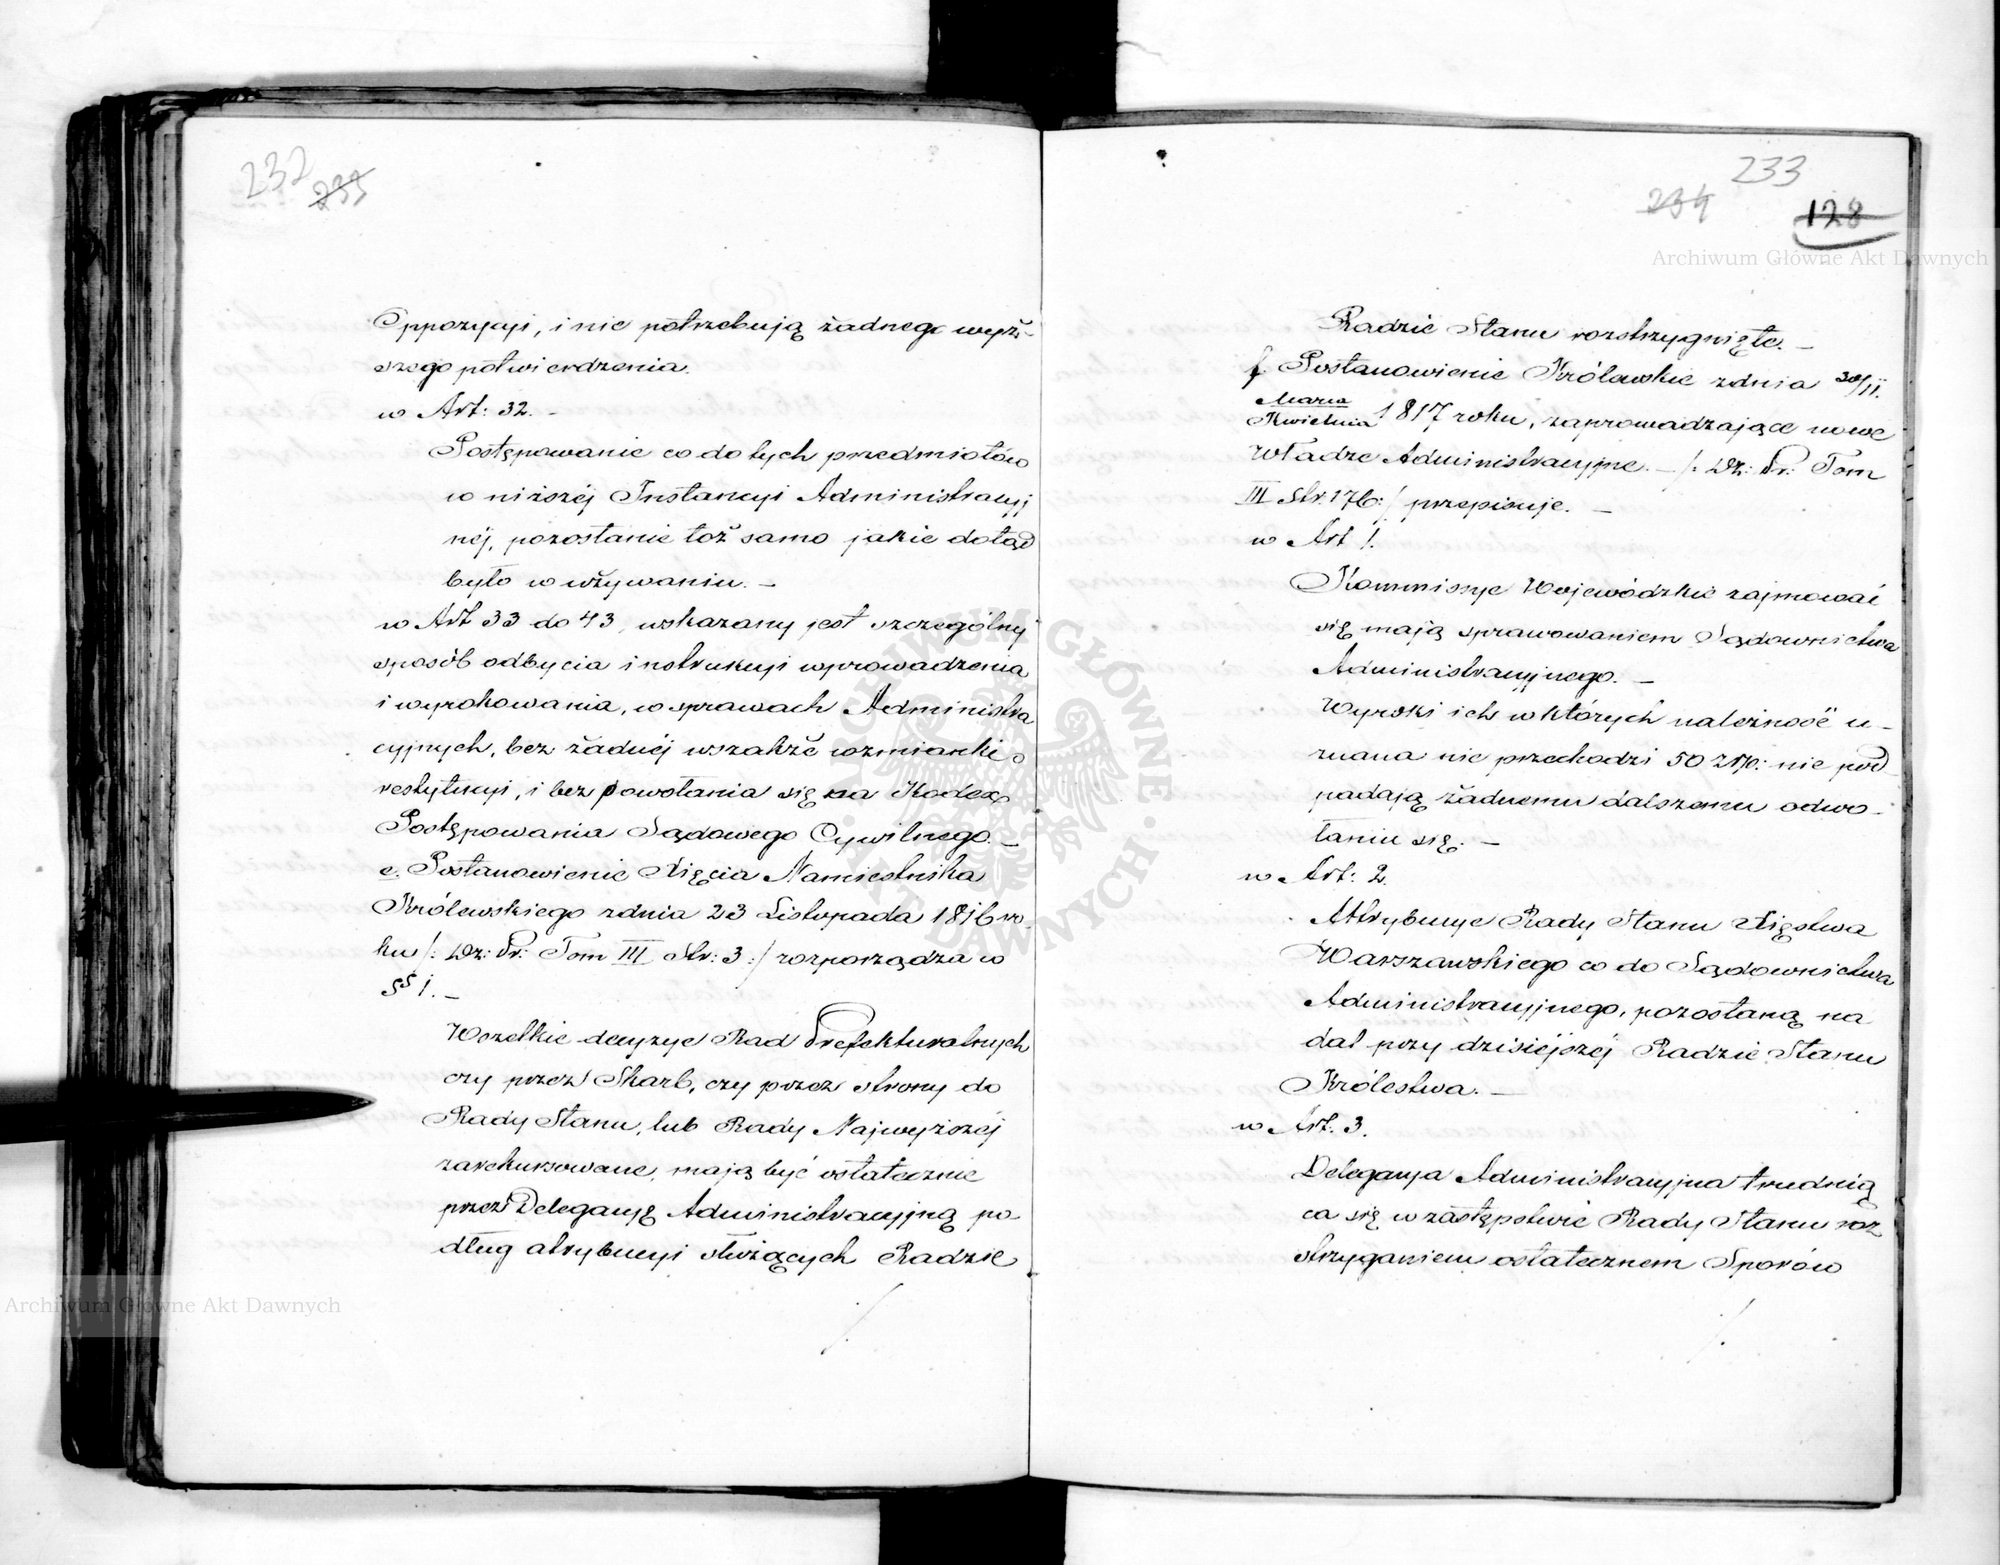 232
233
Oppozycyi, i nie potrzebują żadnego wyż-
szego potwierdzenia.
w Art: 32. -
Postępowanie co do tych przedmiotów
w niższéj Instancyi Administracyj
néj, pozostanie toż samo jakie dotąd
było w używaniu. -
w Art 33 do 43, wskazany jest szczególny
sposób odbycia instrukcyi wprowadzenia
i wyrokowania, w sprawach Administra
cyjnych, bez żadnéj wszakże wzmianki o
restytucyi, i bez powołania się na Kodex
Postępowania Sądowego Cywilnego. -
e. Postanowienie Xięcia Namiestnika
Królewskiego z dnia 23 Listopada 1816 ro-
ku /: Dz: Pr: Tom III Str: 3 :/ rozporządza w
§§ 1. -
Wszelkie decyzye Rad Prefekturalnych
czy przez Skarb, czy przez strony do
Rady Stanu, lub Rady Najwyższéj
zarekursowane, mają być ostatecznie
przez Delegacyę Administracyjną po-
dług atrybucyi służących Radzie
/.
233
234
128
Radzie Stanu rozstrzygnięte. -
f. Postanowienie Królewskie z dnia 30/11.
Marca
Kwietnia 1817 roku, zaprowadzające nowe
Władze Administracyjne. - /: Dz: Pr: Tom
III Str. 176:/ przepisuje. -
w Art 1.
Kommissye Wojewódzkie zajmować
się mają sprawowaniem Sądownictwa
Administracyjnego. -
Wyroki ich w których należność u-
znana nie przechodzi 50 złp: nie pod
padają żadnemu dalszemu odwo-
łaniu się. -
w Art: 2.
Attrybucye Rady Stanu Xięstwa
Warszawskiego co do Sądownictwa
Administracyjnego, pozostaną na
dal przy dzisiéjszéj Radzie Stanu
Królestwa. -
w Art. 3.
Delegacya Administracyjna trudnią
ca się w zastępstwie Rady Stanu roz
strzyganiem ostatecznem Sporów
/.
Archiwum Główne Akt Dawnych
Archiwum Główne Akt Dawnych
ARCHIWUM GŁÓWNE AKT DAWNYCH